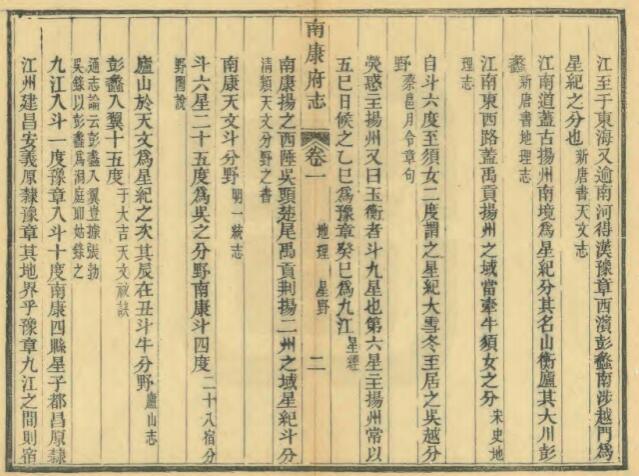 江至于東海又逾南河得漢豫章西濱彭蠡南涉越門爲
星紀之分也 新唐書天文志
江南道蓋古揚州南境爲星紀分其名山衡廬其大川彭
蠡 新唐書地理志
江南東西路蓋禹貢揚州之域當牽牛須女之分 宋史地
理志
自斗六度至須女二度謂之星紀大雪冬至居之吳越分
野 蔡邕月令章句
熒惑主揚州又曰玉衡者斗九星也第六星主揚州常以
五巳日候之乙巳爲豫章癸巳爲九江 星經
南康府志
卷一
地理 星野
二
南康揚之西陲吳頭楚尾禹貢荆揚二州之域星紀斗分
清類天文分野之書
南康天文斗分野 明一統志
斗六星二十五度爲吳之分野南康斗四度 二十八宿分
野圖說
廬山於天文爲星紀之次其辰在丑斗牛分野 廬山志
彭蠡入翼十五度 于大吉天文祕訣
通志論云彭蠡入翼豈據張勃
吳錄以彭蠡爲洞庭卽姑錄之
九江入斗一度豫章入斗十度南康四縣星子都昌原隸
江州建昌安義原隸豫章其地界乎豫章九江之間則宿